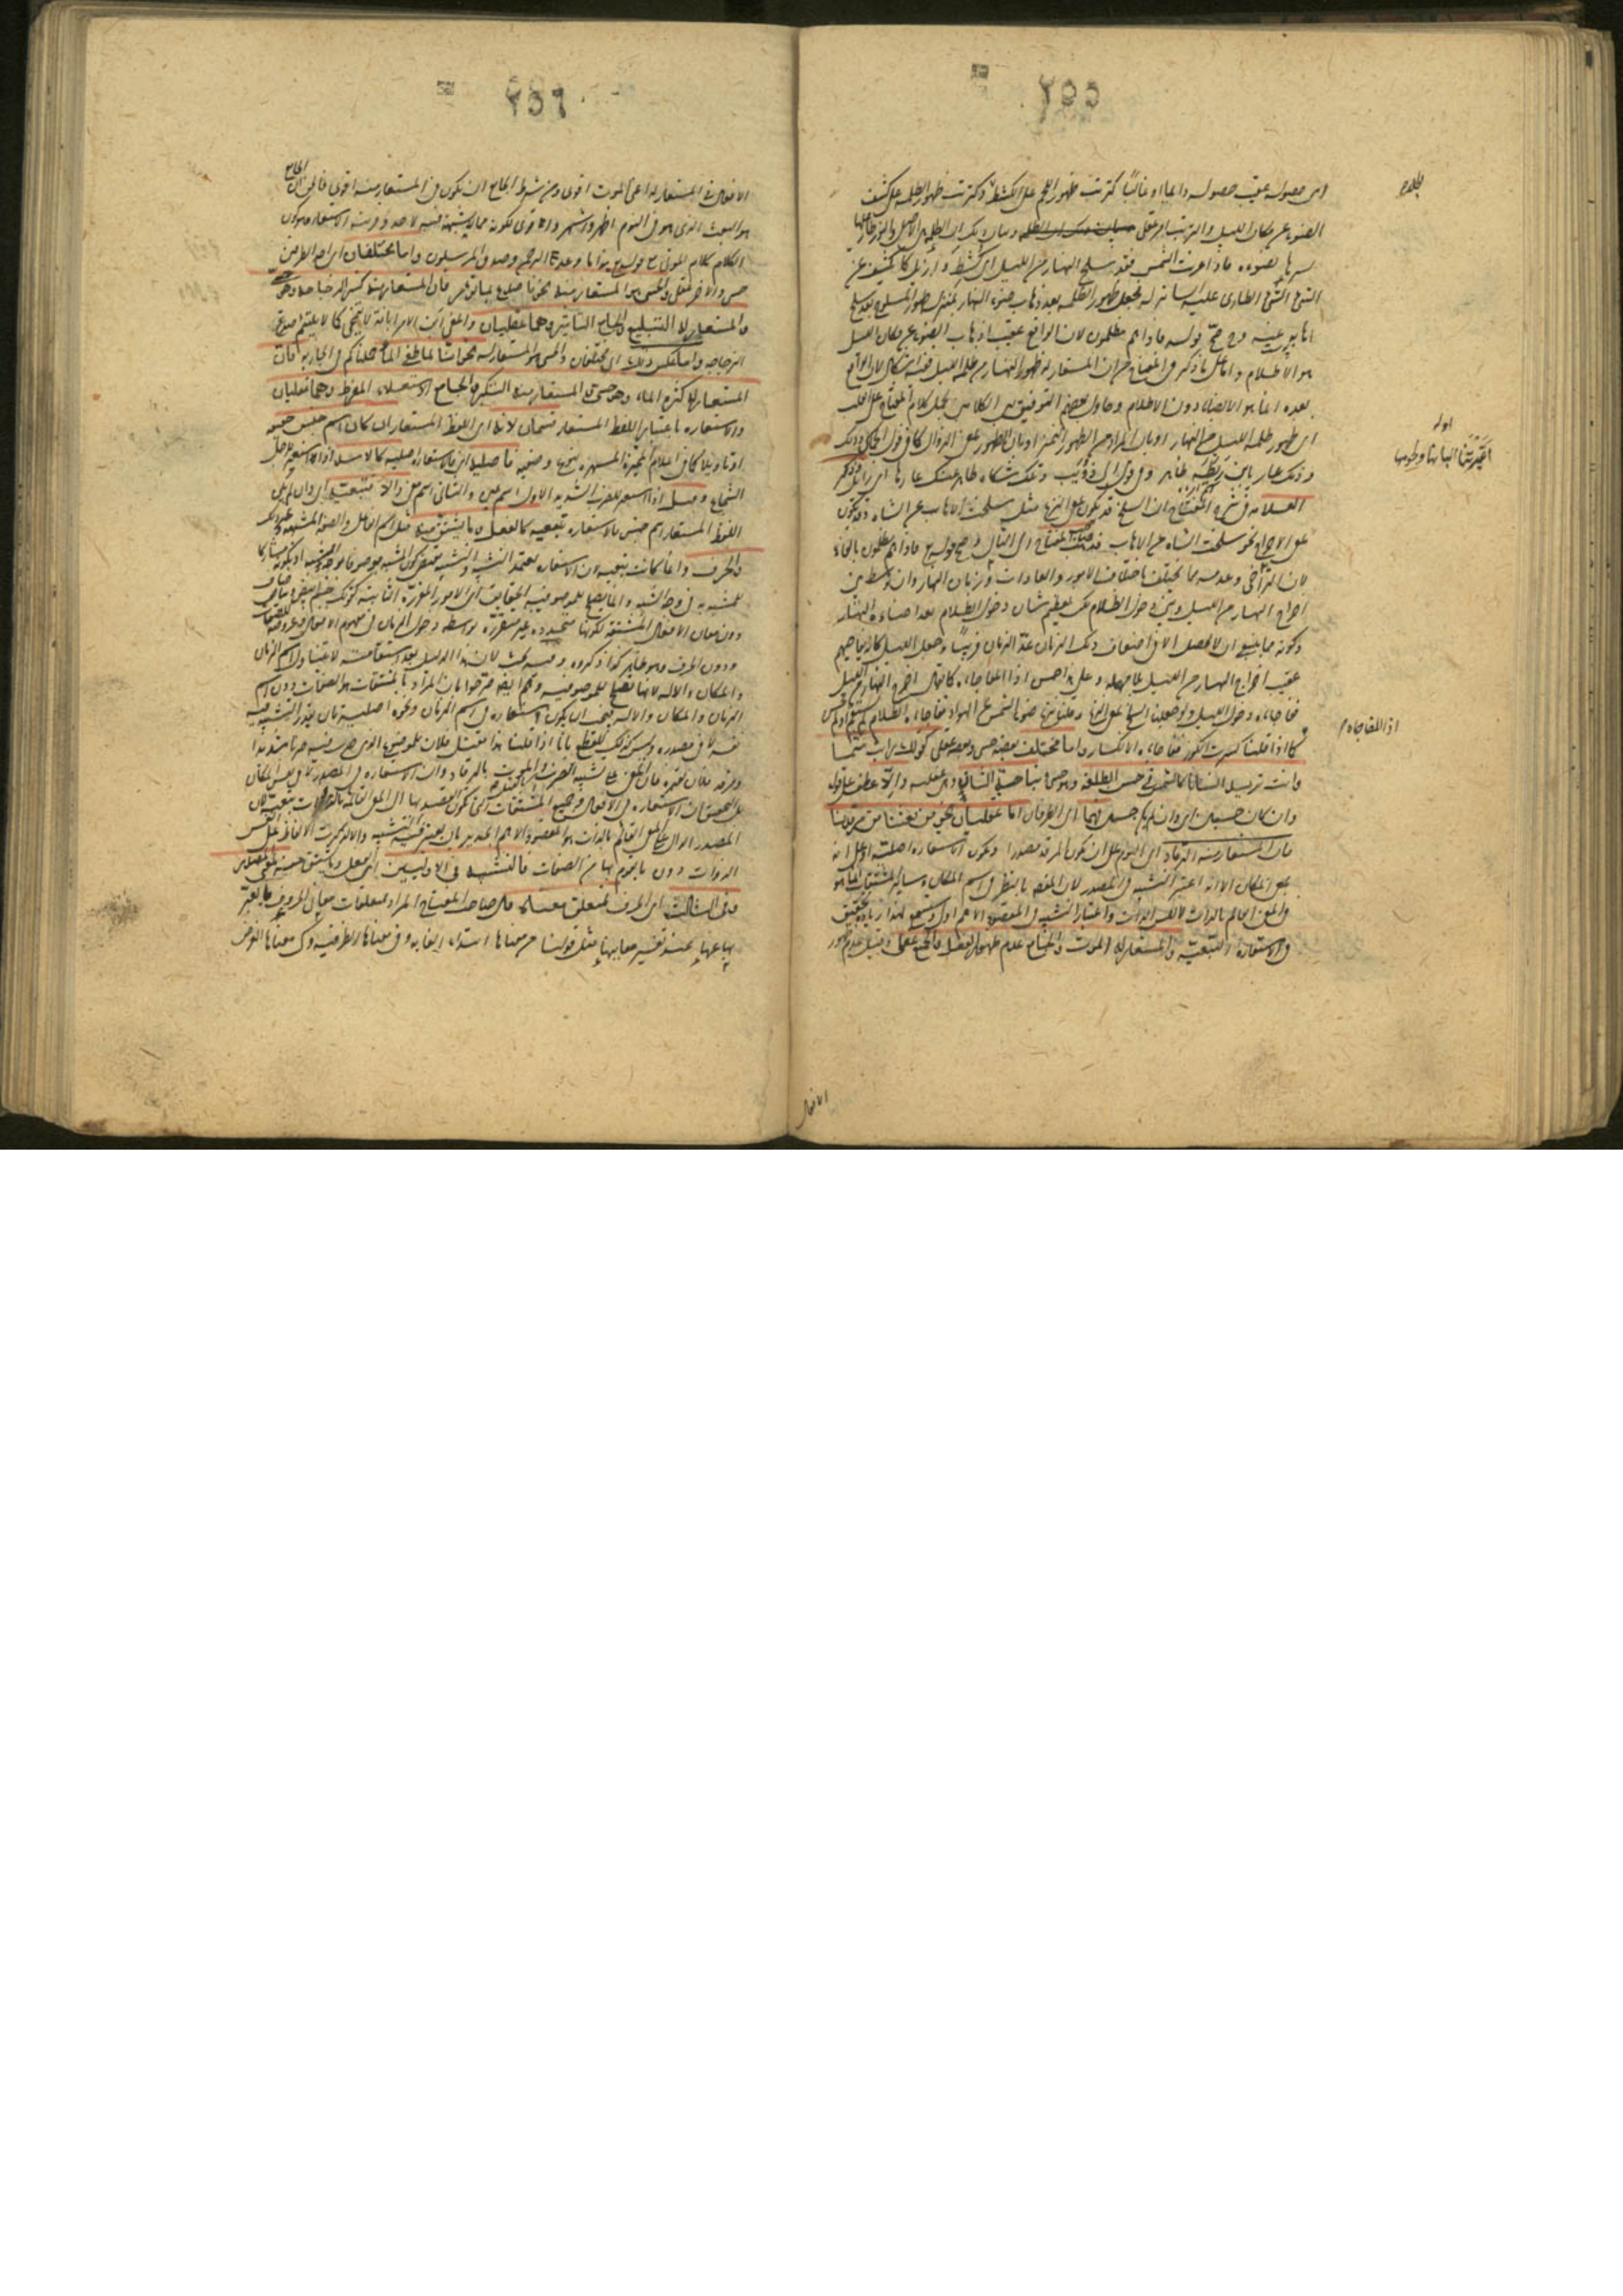 ٢٥٥
اى حصوله عقيب حصوله دائما او غالبا كترتب ظهور اللحم على الكشط وكترتب ظهور الظلمة على كشف
الضوء عن مكان الليل والترتب امر عقلى وبيان ذلك ان الظلمة هى الاصل والنور طار عليها
يسترها بضوءه فاذا غربت الشمس فقد سلخ النهار من الليل اى كشط وازيل كما يكشف عن
الشئ الشئ الطارى عليه الساتر له فجعل ظهور الظلمة بعد ذهاب ضوء النهار بمنزلة ظهور المسلوخ بعد سلخ
اهابه عنه وح صح قوله فاذا هم مظلمون لان الواقع عقيب اذهاب الضوء عن مكان الليل
هو الاظلام واما على ما ذكر فى المفتاح من ان المستعار له ظهور النهار من ظلمة الليل ففيه اشكال لان الواقع
بعده انما هو الابصار دون الاظلام وحاول بعضهم التوفيق بين الكلامين بحمل كلام المفتاح على القلب
اى ظهور ظلمة الليل من النهار او بان المراد من الظهور التميز او بان الظهور بمعنى الزوال كما فى قول الحماسى وذلك
وذلك عار يا ابن ريطة ظاهر وفى قول ابى ذؤيب وتلك شكاة ظاهر عنك عارها اى زائل وذكر
العلامة فى شرح المفتاح ان السلخ قد يكون بمعنى النزع مثل سلخت الاهاب عن الشاة وقد يكون
بمعنى الاخراج نحو سلخت الشاة من الاهاب فذهب صاحب المفتاح الى الثانى وصح قوله تع فاذا هم مظلمون بالفاء
لان التراخى وعدمه مما يختلف باختلاف الامور والعادات وزمان النهار وان توسط بين
اخراج النهار من الليل وبين دخول الظلام لكن لعظم شان دخول الظلام بعد اضاءة النهار
وكونه مما ينبغى ان لا يحصل الا فى اضعاف ذلك الزمان عد الزمان قريبا وجعل الليل كانه يفاجيهم
عقيب اخراج النهار من الليل بلا مهلة وعلى هذا حسن اذا المفاجاة كما يقال اخرج النهار من الليل
ففاجاه دخول الليل ولو جعلنا السلخ بمعنى النزع وقلنا نزع ضوء الشمس عن الهواء ففاجاه الظلام لم يستقم او لم يحسن
كما اذا قلنا كسرت الكوز ففاجاه الانكسار واما مختلف بعضه حسى وبعضه عقلى كقولك رايت شمسا
وانت تريد انسانا كالشمس فى حسن الطلعة وهو حسى ونباهة الشان وهى عقلية والا عطف على قوله
وان كانا حسيين اى وان لم يكن حسيين فهما اى الطرفان اما عقليان نحو من بعثنا من مرقدنا
فان المستعار منه الرقاد اى النوم على ان يكون المرقد مصدرا وتكون الاستعارة اصلية او على انه
بمعنى المكان الا انه اعتبر التشبيه فى المصدر لان المقصود بالنظر فى اسم المكان وسائر المشتقات انما هو
المعنى القائم بالذات لا نفس الذات واعتبار التشبيه فى المقصود الاهم اولى وستسمع لهذا زيادة تحقيق
فى الاستعارة التبعية والمستعار له الموت والجامع عدم ظهور الفعل والجميع عقلى وقيل عدم ظهور
الافعال
اوله
اعيرتنا البانها ولحومها
اذا المفاجاة
٢٥٦
الافعال فى المستعار له اعنى الموت اقوى ومن شرط الجامع ان يكون فى المستعار منه اقوى فالحق ان الجامع
هو البعث الذى هو فى النوم اظهر واشهر واقوى لكونه مما لا شبهة فيه لاحد وقرينة الاستعارة كون
الكلام كلام الموتى مع قوله تع هذا ما وعد الرحمن وصدق المرسلون واما مختلفان اى احد الطرفين
حسى والآخر عقلى والحسى هو المستعار منه نحو فاصدع بما تؤمر فان المستعار منه كسر الزجاجة وهو حسى
والمستعار له التبليغ والجامع التاثير وهما عقليان والمعنى ابن الامر ابانة لا تنمحى كما لا يلتئم صدع
الزجاجة واما عكس ذلك اى مختلفان والحسى هو المستعار له نحو انا لما طغى الماء حملناكم فى الجارية فان
المستعار له كثرة الماء وهو حسى والمستعار منه التكبر والجامع الاستعلاء المفرط وهما عقليان
والاستعارة باعتبار اللفظ المستعار قسمان لانه اى اللفظ المستعار ان كان اسم جنس حقيقة
او تاويلا كما فى الاعلام المشتهرة بنوع وصفية فاصلية اى فالاستعارة اصلية كاسد اذا استعير للرجل
الشجاع وقتل اذا استعير للضرب الشديد الاول اسم عين والثانى اسم معنى والا فتبعية اى وان لم يكن
اللفظ المستعار اسم جنس فالاستعارة تبعية كالفعل وما يشتق منه مثل اسم الفاعل والصفة المشبهة وغير ذلك
والحرف وانما كانت تبعية لان الاستعارة تعتمد التشبيه والتشبيه يقتضى كون المشبه موصوفا بوجه الشبه او بكونه مشاركا
للمشبه به فى وجه الشبه وانما يصلح للموصوفية الحقايق اى الامور المتقررة الثابتة كقولك جسم ابيض وبياض صاف
دون معانى الافعال والصفات المشتقة لكونها متجددة غير متقررة بواسطة دخول الزمان فى مفهوم الافعال وعروضه للصفات
ودون الحروف وهو ظاهر كذا ذكروه وفيه بحث لان هذا الدليل بعد استقامته لا يتناول اسم الزمان
والمكان والآلة لانها تصلح للموصوفية وهم ايضا صرحوا بان المراد بالمشتقات هو الصفات دون اسم
الزمان والمكان والآلة فيجب ان يكون الاستعارة فى اسم الزمان ونحوه اصلية بان يقدر التشبيه فيه
نفسه لا فى مصدره وليس كذلك للقطع بانا اذا قلنا هذا مقتل فلان للموضع الذى ضرب فيه ضربا شديدا
ومرقد فلان لقبره فان المعنى على تشبيه الضرب بالقتل والموت بالرقاد وان الاستعارة فى المصدر لا فى نفس المكان
بل التحقيق ان الاستعارة فى الافعال وجميع المشتقات التى يكون القصد بها الى المعانى القائمة بالذوات تبعية لان
المصدر الدال على المعنى القائم بالذات هو المقصود الاهم الجدير بان يعتبر فيه التشبيه والا لذكرت الالفاظ الدالة على نفس
الذوات دون ما يقوم بها من الصفات فالتشبيه فى الاوليين اى الفعل وما يشتق منه لمعنى المصدر
وفى الثالث اى الحرف لمتعلق معناه قال صاحب المفتاح المراد بمتعلقات معانى الحروف ما يعبر
بها عنها عند تفسير معانيها مثل قولنا من معناها ابتداء الغاية وفى معناها الظرفية وكى معناها الغرض